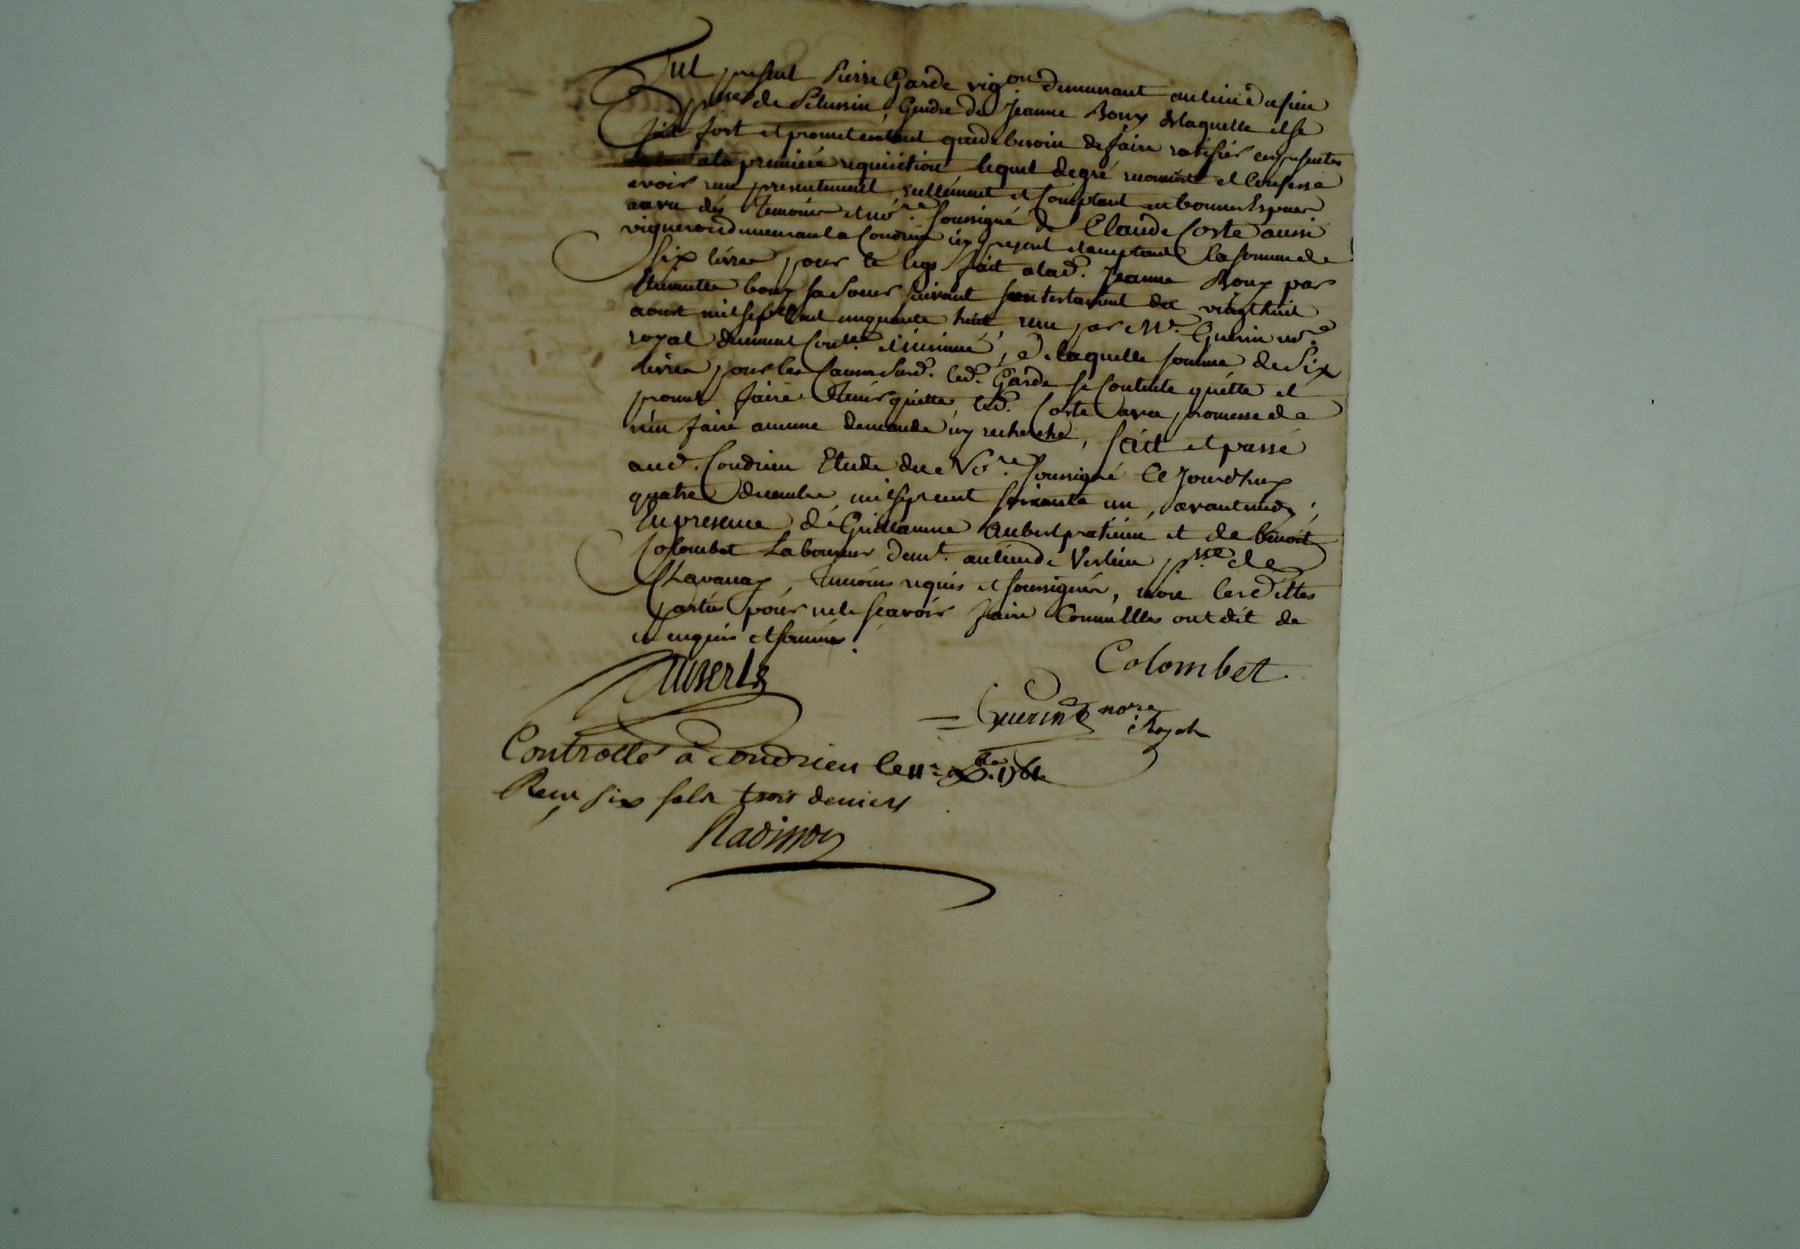 Fut present Pierre Garde vig.on demeurant au lieu
p.sse de Pelussin, Gendre de Jeanne Boux delaquelle il se
fait fort et promet entant que de besoin de faire ratifier ces presentes
ala premiere requisition lequel de gré reconnoit et confesse
avoir reçu presentement réellement et comptant en bonnes Espèces
au vu des Temoins et no.re soussigné de Claude Corte aussi
vigneron demeurant a Condrieu icy present et acceptant la somme de
Six livres pour le legs fait a lad. Jeanne Boux par
boux sa Soeur suivant son testament du vingt huit
aoust mil sept Cent cinquante huit, reçu par M.e Guerin no.re
royal duement Cont.lé et insinué, de laquelle somme de Six
livres pour les Causes Susd. led. Garde se Contente quitte et
promet faire Tenir quitte led. Corte avec promesse de
n'en faire aucune demande ny recherche, fait et passé
aud. Condrieu Etude du No.re soussigné Ce Jourd'huy
quatre decembre mil sept cent soixante un, avant midy;
En presence de Guillaume Aubert praticien et de benoit
Colombet Laboureur dem.t au lieu de Verlieu p.sse de
Chavanay, Temoins requis et soussignés, non lesdittes
parties pour ne le scavoir faire Comme Elles ont dit de
ce enquis et sommés.
Aubert
Colombet
Guerin no.re Royal
Controllé a Condrieu le 11.e Xbre 1761
Recu six sols trois deniers
Radisson